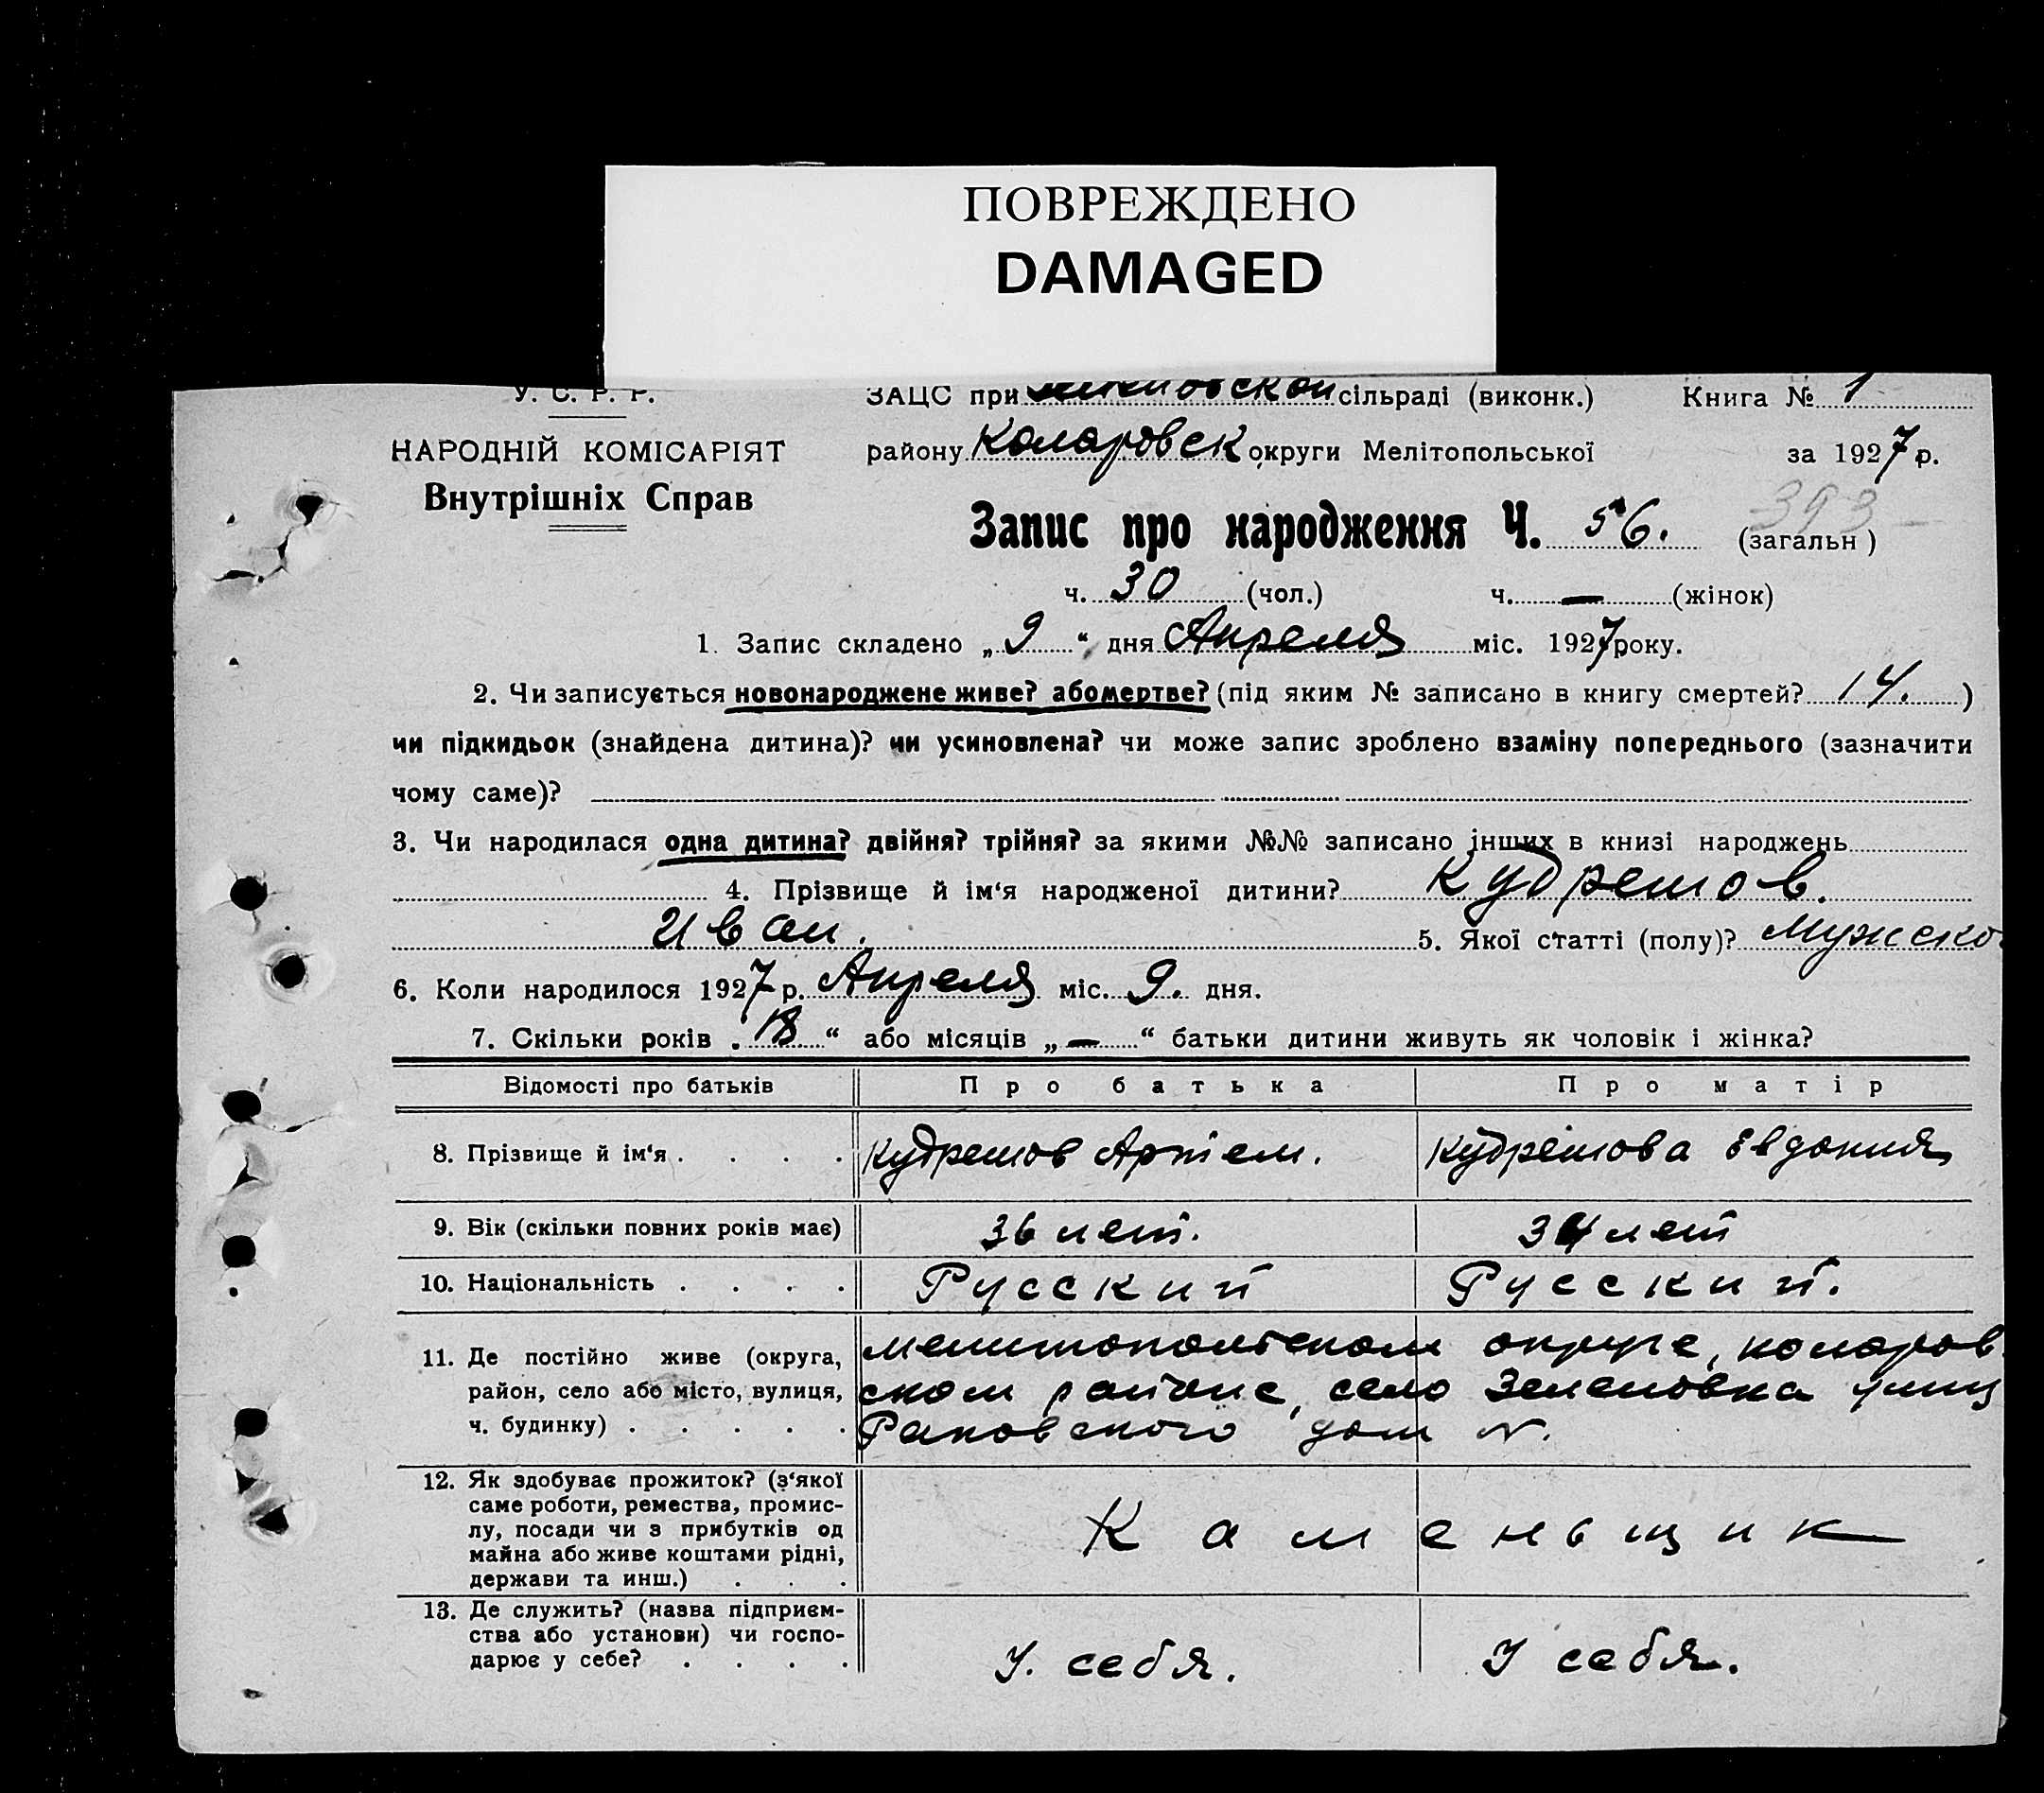 ПОВРЕЖДЕНО
DAMAGED
У. С. Р. Р.
ЗАЦС при сільраді (виконк.) Книга № 1
НАРОДНІЙ КОМІСАРІЯТ
району Коларовск округи Мелітопольської за 1927 р.
Внутрішніх Справ
393
Запис про народження Ч. 56. (загальн)
ч. 30 (чол.) ч. — (жінок)
1. Запис складено „ 9 “ дня Апреля міс. 1927 року.
2. Чи записується новонароджене живе? або мертве? (під яким № записано в книгу смертей? 14. )
чи підкидьок (знайдена дитина)? чи усиновлена? чи може запис зроблено взаміну попереднього (зазначити
чому саме)?
3. Чи народилася одна дитина? двійня? трійня? за якими №№ записано інших в книзі народжень
4. Прізвище й ім‘я народженої дитини? Кудрешов.
Иван. 5. Якої статті (полу)? Мужско
6. Коли народилося 1927 р. Апреля міс. 9. дня.
7. Скільки років „ 18 “ або місяців „ — “ батьки дитини живуть як чоловік і жінка?
Відомості про батьків Про батька Про матір
8. Прізвище й ім‘я . . . . Кудрешов Артем. Кудрешова Евдокия
9. Вік (скільки повних років має) 36 лет. 34 лет
10. Національність . . . . Русский Русский.
11. Де постійно живе (округа, мелитопольском округе, коларов
район, село або місто, вулиця, ском районе, село Зеленовка улиц
ч. будинку) . . . . . Раковского дом №.
12. Як здобуває прожиток? (з‘якої
саме роботи, ремества, промис-
лу, посади чи з прибутків од Каменьщик
майна або живе коштами рідні,
держави та инш.) . . .
13. Де служить? (назва підприєм-
ства або установи) чи госпо-
дарює у себе? . . . . У. себя. У себя.